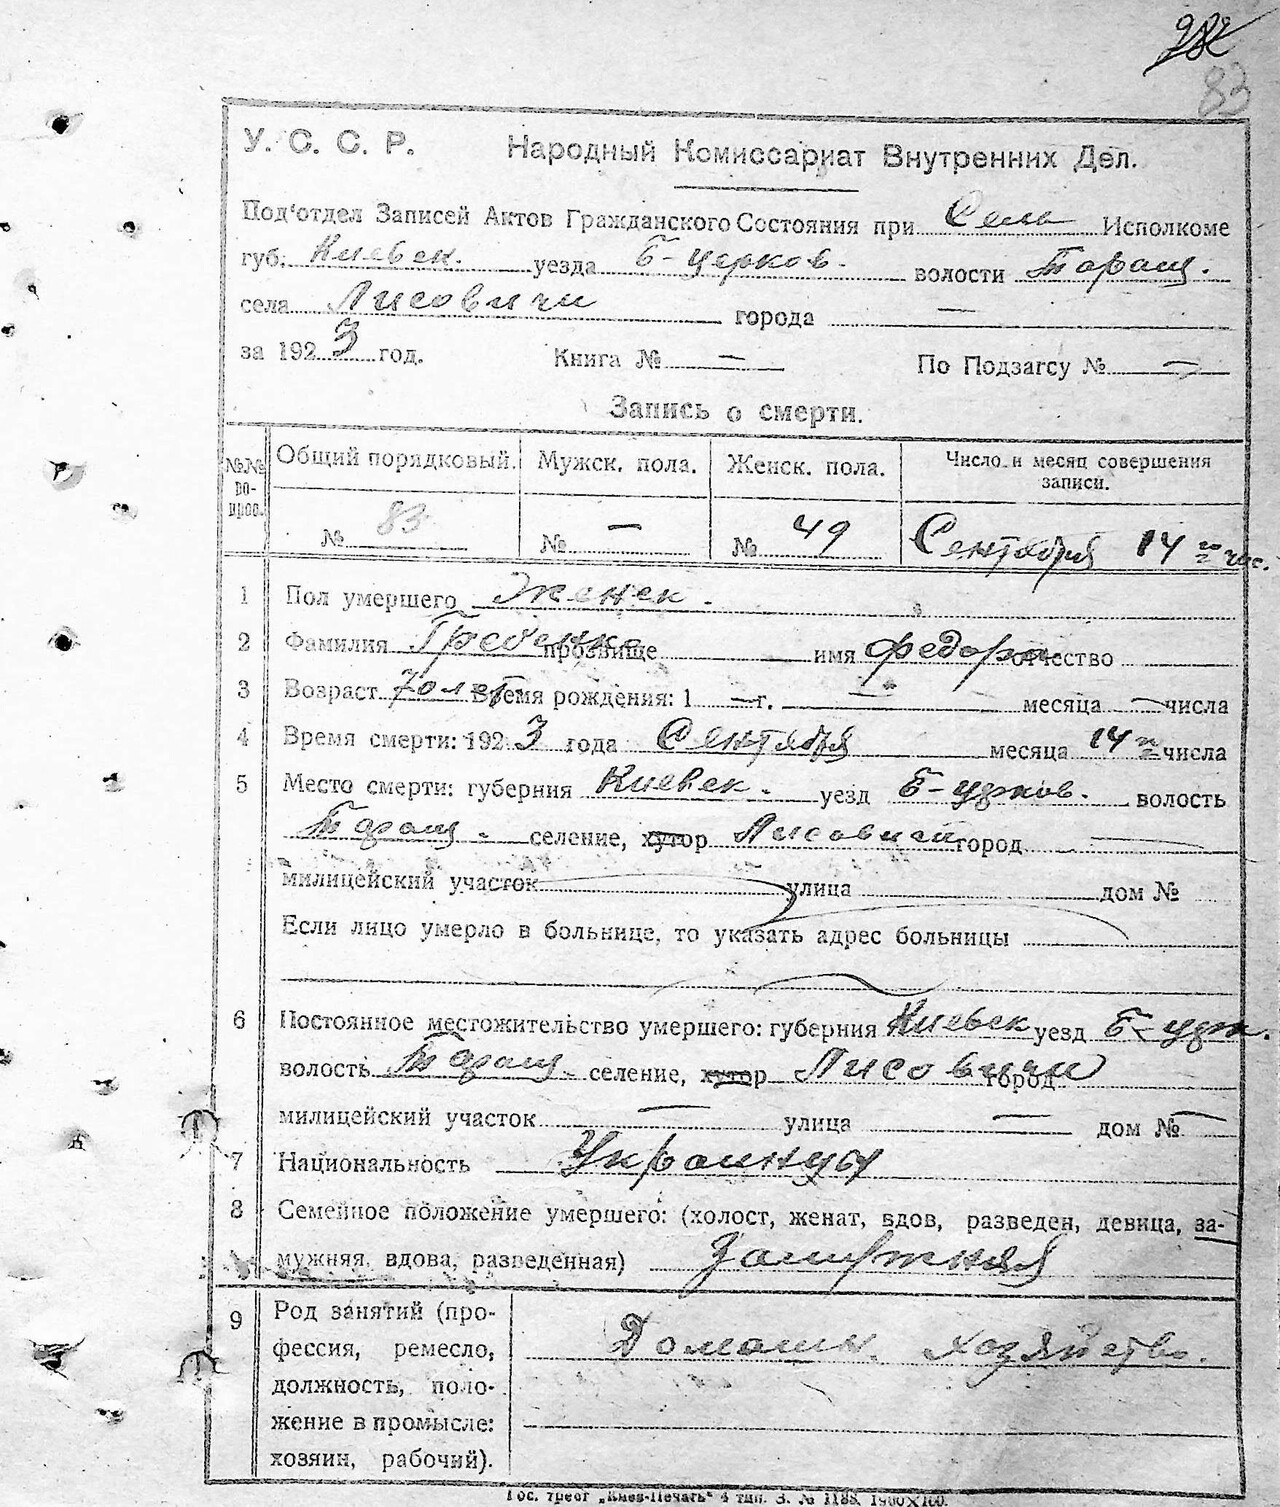 83
У. С. С. Р. Народный Комиссариат Внутренних Дел.
Под'отдел Записей Актов Гражданского Состояния при Сель Исполкоме
губ. Киевск. уезда Б-церков. волости Таращ.
села Лисовичи города —
за 1923 год. Книга № — По Подзагсу № —
Запись о смерти.
№№ вопрос. Общий порядковый. Мужск. пола. Женск. пола. Число и месяц совершения записи.
№ 83 № — № 49 Сентября 14 го чис.
1 Пол умершего Женск.
2 Фамилия Гребенко прозвище имя Федора отчество
3 Возраст 70 лет Время рождения: 1 — г. — месяца — числа
4 Время смерти: 1923 года Сентября месяца 14 числа
5 Место смерти: губерния Киевск. уезд Б-церков. волость
Таращ. селение, хутор Лисовичи город —
милицейский участок улица дом №
Если лицо умерло в больнице, то указать адрес больницы
6 Постоянное местожительство умершего: губерния Киевск уезд Б-церк.
волость Таращ. селение, хутор Лисовичи город
милицейский участок — улица — дом № —
7 Национальность Украинцы
8 Семейное положение умершего: (холост, женат, вдов, разведен, девица, за-
мужняя, вдова, разведенная) Замужняя
9 Род занятий (про-
фессия, ремесло, Домашн. хозяйство.
должность, поло-
жение в промысле:
хозяин, рабочий).
Гос. трест „Киев-Печать“ 4 тип. З. № 1188. 1900×100.